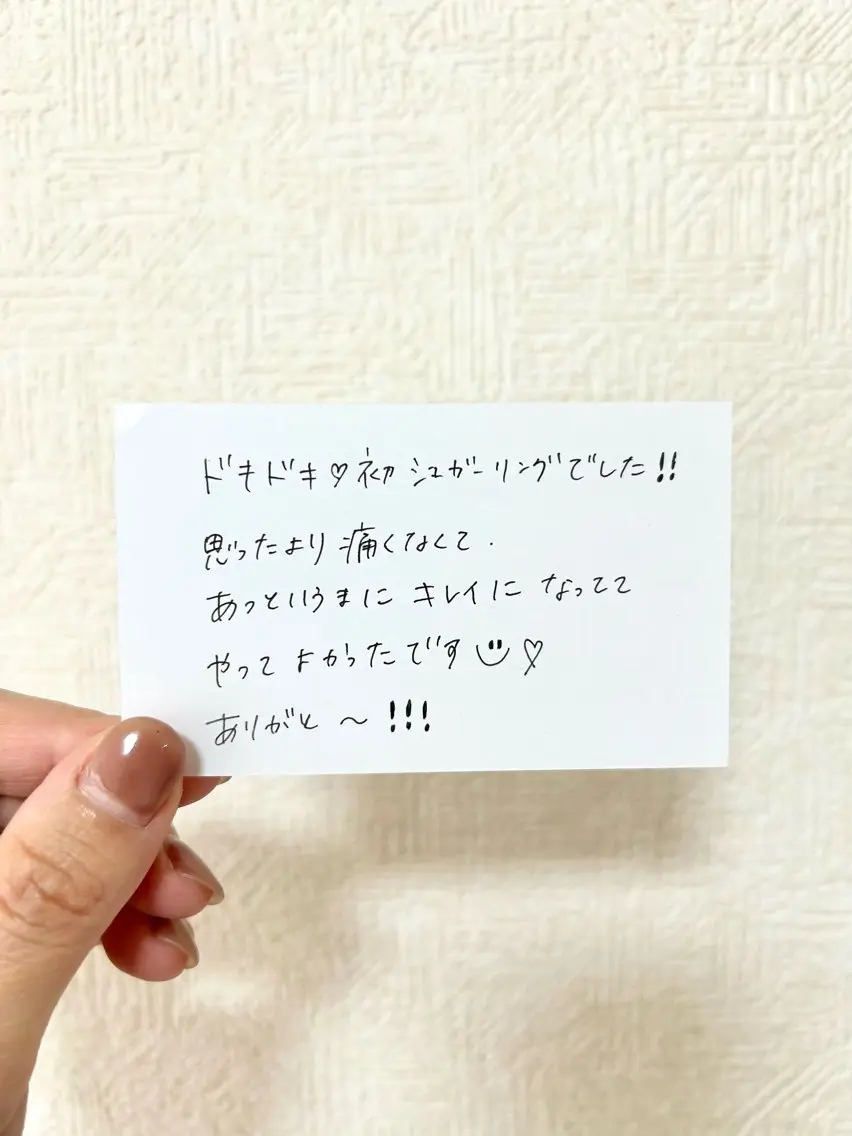 ドキドキ♡初シュガーリングでした!!
思ったより痛くなくて.
あっというまにキレイになってて
やってよかったです☺♡
ありがと〜!!!